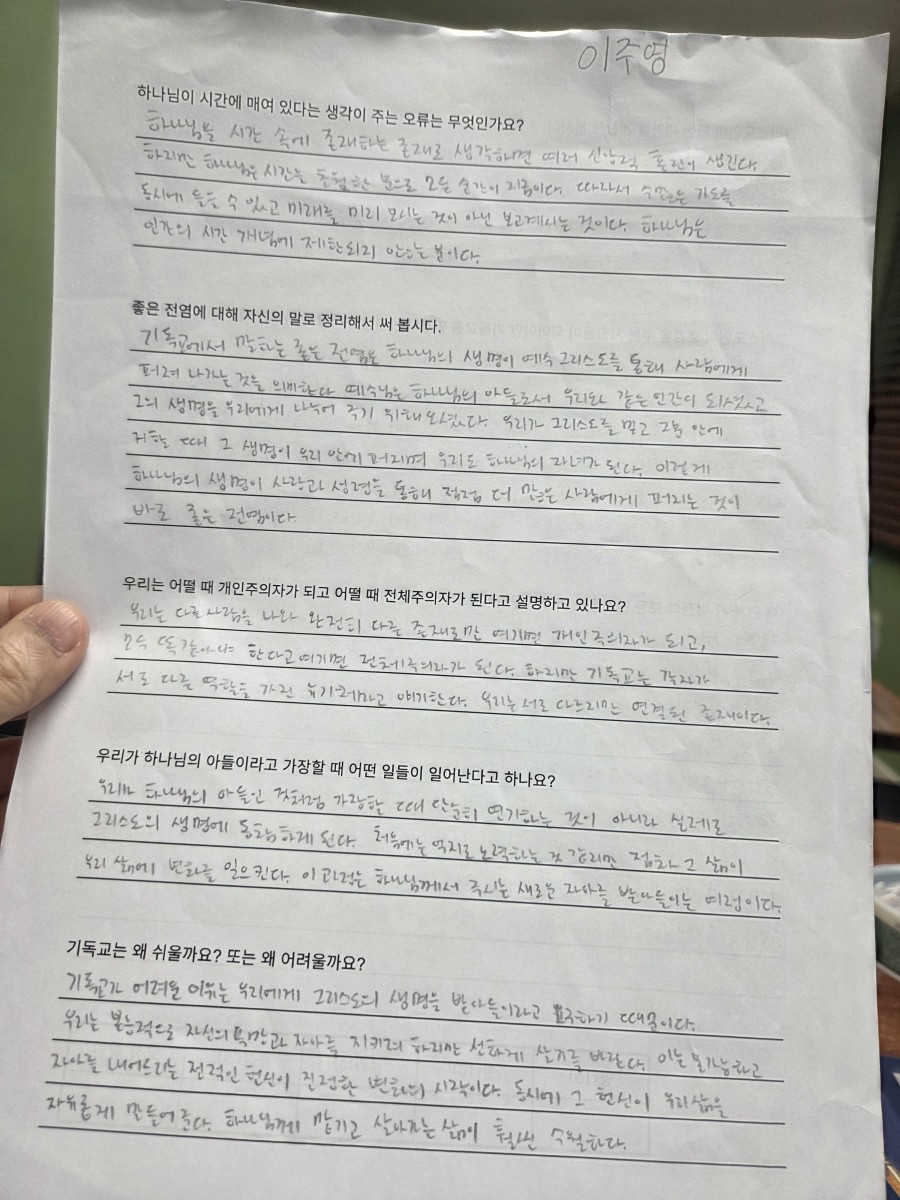 이주영
하나님이 시간에 매여 있다는 생각이 주는 오류는 무엇인가요?
하나님을 시간 속에 존재하는 존재로 생각하면 여러 신앙적 혼란이 생긴다.
하지만 하나님은 시간을 초월한 분으로 모든 순간이 지금이다. 따라서 수많은 기도를
동시에 들을 수 있고 미래를 미리 보시는 것이 아닌 보고계시는 것이다. 하나님은
인간의 시간 개념에 제한되지 않는 분이다.
좋은 전염에 대해 자신의 말로 정리해서 써 봅시다.
기독교에서 말하는 좋은 전염은 하나님의 생명이 예수 그리스도를 통해 사람에게
퍼져 나가는 것을 의미한다. 예수님은 하나님의 아들로서 우리와 같은 인간이 되셨고
그의 생명을 우리에게 나누어 주기 위해 오셨다. 우리가 그리스도를 믿고 그분 안에
거할 때 그 생명이 우리 안에 퍼지며 우리도 하나님의 자녀가 된다. 이렇게
하나님의 생명이 사랑과 성령을 통해 점점 더 많은 사람에게 퍼지는 것이
바로 좋은 전염이다.
우리는 어떨 때 개인주의자가 되고 어떨 때 전체주의자가 된다고 설명하고 있나요?
우리는 다른 사람을 나와 완전히 다른 존재로만 여기면 개인주의자가 되고,
모두 똑같아야 한다고 여기면 전체주의자가 된다. 하지만 기독교는 각자가
서로 다른 역할을 가진 유기체라고 얘기한다. 우리는 서로 다르지만 연결된 존재이다.
우리가 하나님의 아들이라고 가장할 때 어떤 일들이 일어난다고 하나요?
우리가 하나님의 아들인 것처럼 가장할 때 단순히 연기하는 것이 아니라 실제로
그리스도의 생명에 동참하게 된다. 처음에는 억지로 노력하는 것 같지만 점차 그 삶이
우리 삶에 변화를 일으킨다. 이 과정은 하나님께서 주시는 새로운 자아를 받아들이는 여정이다.
기독교는 왜 쉬울까요? 또는 왜 어려울까요?
기독교가 어려운 이유는 우리에게 그리스도의 생명을 받아들이라고 요구하기 때문이다.
우리는 본능적으로 자신의 욕망과 자아를 지키려 하지만 선하게 살기를 바란다. 이는 불가능하고
자아를 내어드리는 전적인 헌신이 진정한 변화의 시작이다. 동시에 그 헌신이 우리 삶을
자유롭게 만들어 준다. 하나님께 맡기고 살아가는 삶이 훨씬 수월하다.